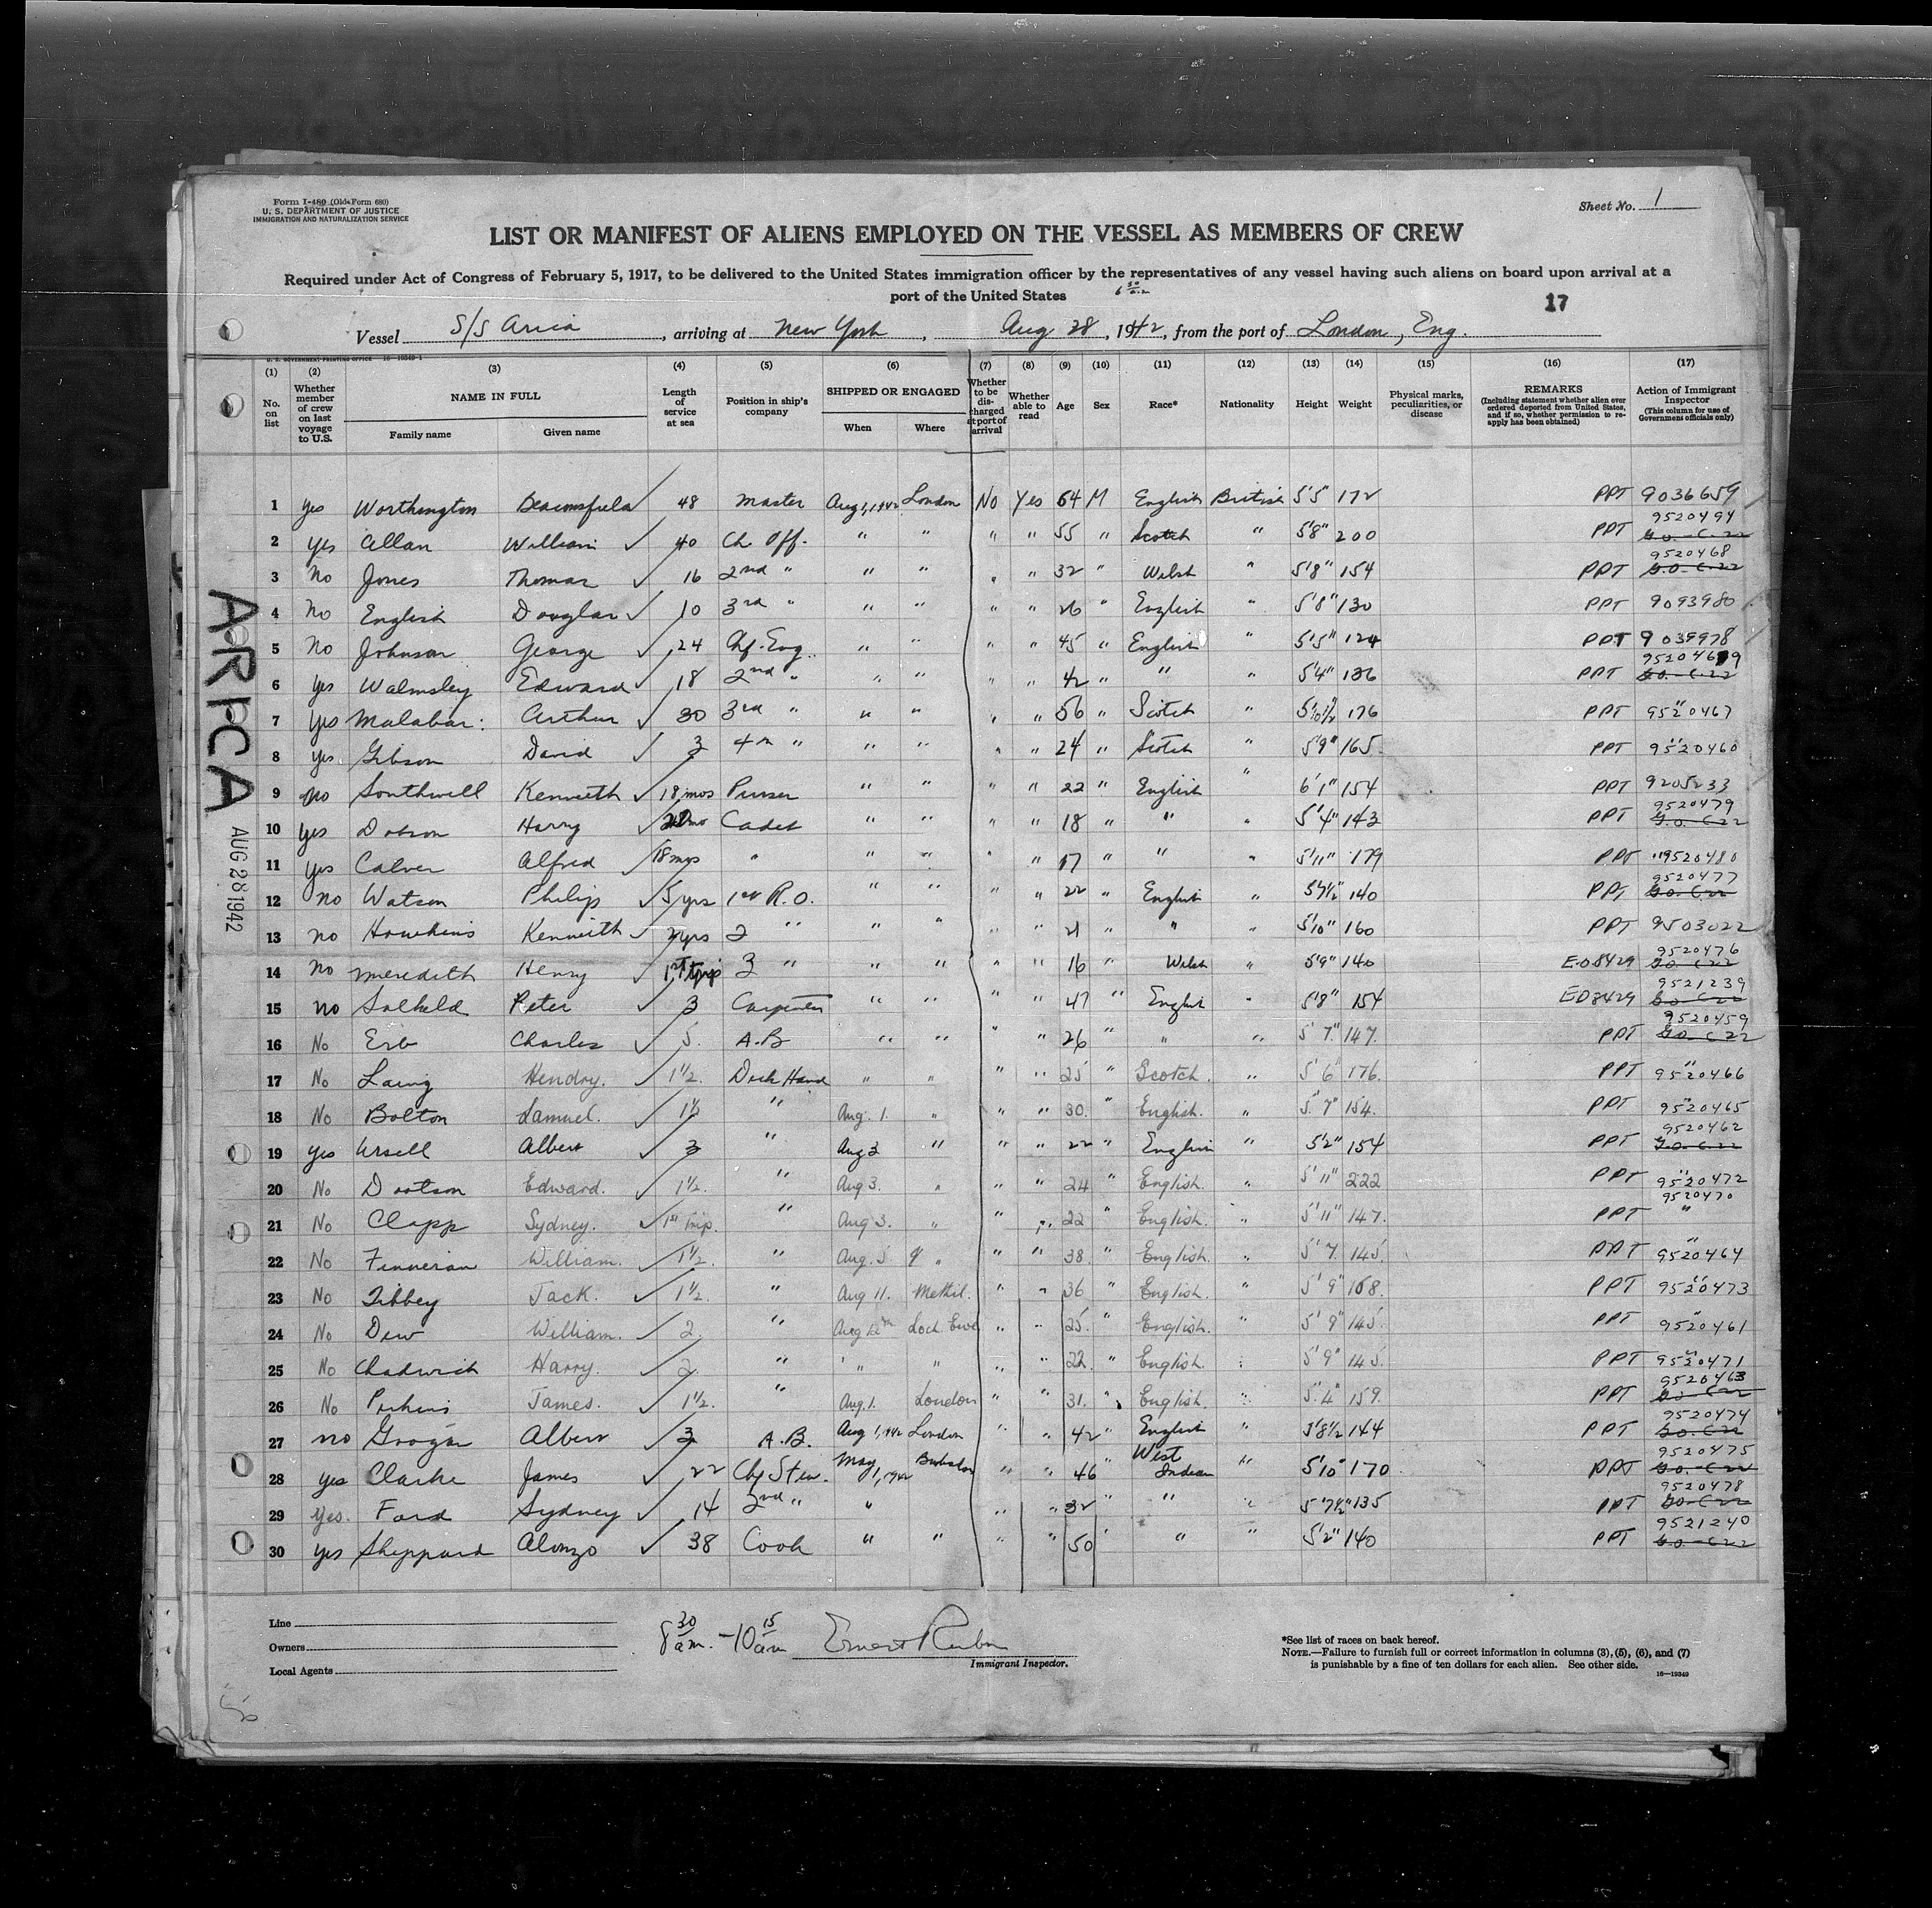 Form I-480 (Old Form 680)
U. S. DEPARTMENT OF JUSTICE
IMMIGRATION AND NATURALIZATION SERVICE
Sheet No. 1
LIST OR MANIFEST OF ALIENS EMPLOYED ON THE VESSEL AS MEMBERS OF CREW
Required under Act of Congress of February 5, 1917, to be delivered to the United States immigration officer by the representatives of any vessel having such aliens on board upon arrival at a
port of the United States
17
Vessel S/S Arica, arriving at New York, Aug 28, 1942, from the port of London, Eng.
U. S. GOVERNMENT PRINTING OFFICE 16-19349-1
(1) No. on list
(2) Whether member of crew on last voyage to U.S.
(3) NAME IN FULL Family name Given name
(4) Length of service at sea
(5) Position in ship's company
(6) SHIPPED OR ENGAGED When Where
(7) Whether to be discharged at port of arrival
(8) Whether able to read
(9) Age
(10) Sex
(11) Race*
(12) Nationality
(13) Height
(14) Weight
(15) Physical marks, peculiarities, or disease
(16) REMARKS (Including statement whether alien ever ordered deported from United States, and if so, whether permission to reapply has been obtained)
(17) Action of Immigrant Inspector (This column for use of Government officials only)
1 Yes Worthington Beaconsfield 48 Master Aug 1, 1942 London No Yes 64 M English British 5'5" 172 PPT 9036659
2 Yes Allan William ✓ 40 Ch. Off. " " " " 55 " Scotch " 5'8" 200 PPT 9520494 G.O.-C.22
3 No Jones Thomas ✓ 16 2nd " " " " " 32 " Welsh " 5'8" 154 PPT 9520468 G.O.-C.22
4 No English Douglas ✓ 10 3rd " " " " " 26 " English " 5'8" 130 PPT 9093980
5 No Johnson George ✓ 24 Chf. Eng. " " " " 45 " English " 5'5" 124 PPT 9039978
6 Yes Walmsley Edward ✓ 18 2nd " " " " " 42 " " " 5'4" 136 PPT G.O.-C.22
7 Yes Malabar Arthur ✓ 30 3rd " " " " " 56 " Scotch " 5'10½" 176 PPT " 9520467
8 Yes Gibson David ✓ 3 4th " " " " " 24 " Scotch " 5'9" 165 PPT " 9520460
9 No Southwell Kenneth ✓ 18 mos Purser " " " " 22 " English " 6'1" 154 PPT 9205233
10 Yes Dobson Harry ✓ Cadet " " " " 18 " " " 5'4" 143 PPT 9520479 G.O.-C.22
11 Yes Calver Alfred ✓ 18 mos " " " " " 17 " " " 5'11" 179 PPT " 9520480
12 No Watson Philip ✓ 5 yrs 1st R.O. " " " " 22 " English " 140 PPT 9520477 G.O.-C.22
13 No Hawkins Kenneth ✓ 2 yrs 2 " " " " " 21 " " " 5'10" 160 PPT 9503022
14 No Meredith Henry ✓ 1st trip 3 " " " " " 16 " Welsh " 5'9" 140 E.O 8429 9520476 G.O.-C.22
15 No Salkeld Peter ✓ 3 Carpenter " " " " 47 " English " 5'8" 154 EO 8429 9521239 G.O.-C.22
16 No Erb Charles ✓ 5 A.B " " " " 26 " " 5'7" 147 PPT 9520459 G.O.-C.22
17 No Laing Hendry. ✓ 1½. Deck Hand " " " " 25 " Scotch. " 5'6" 176. PPT " 9520466
18 No Bolton Samuel. ✓ 1½ " Aug. 1. " " " 30. " English. " 5'7" 154. PPT " 9520465
19 Yes Ursell Albert ✓ 3 " Aug 3 " " " 22 " English " 5'2" 154 PPT 9520462 G.O.-C.22
20 No Dootson Edward. ✓ 1½. " Aug 3. " " " 24 " English. " 5'11" 222 PPT " 9520472
21 No Clapp Sydney. ✓ 1st Trip. " Aug 3. " " " 22 " English. " 5'11" 147. PPT 9520470 "
22 No Finneran William. ✓ 1½. " Aug. 5 " " " 38 " English. " 5'7" 145 PPT " 9520464
23 No Tibbey Jack. ✓ 1½. " Aug 11. Methil. " " 36 " English. " 5'9" 168. PPT " 9520473
24 No Dew William. ✓ 2. " Aug 12th Loch Ewe " " 25. " English. " 5'9" 145. PPT " 9520461
25 No Chadwick Harry. ✓ 2. " " " " " 22. " English. " 5'9" 145. PPT " 9520471
26 No Perkins James. ✓ 1½. " Aug. 1. London " " 31. " English. " 5'4" 159. PPT 9520463 G.O.-C.22
27 No Grogan Albert ✓ 3 A.B. Aug 1, 1942 London " " 42 " English " 5'8½ 144 PPT 9520474 G.O.-C.22
28 Yes Clarke James ✓ 22 Chf Stew. May 1, 1942 " " 46 " West Indian " 5'10" 170 PPT 9520475 G.O.-C.22
29 Yes. Ford Sydney ✓ 14 2nd " " " " 32 " " " 5'7½" 135 PPT 9520478 G.O.-C.22
30 Yes Sheppard Alonzo ✓ 38 Cook " " " " 50 " " " 5'2" 140 PPT 9521240 G.O.-C.22
ARICA
AUG 28 1942
Line
Owners
Local Agents
8 30 am. - 10 15 am Ernest Rubin
Immigrant Inspector.
*See list of races on back hereof.
NOTE.—Failure to furnish full or correct information in columns (3), (5), (6), and (7)
is punishable by a fine of ten dollars for each alien. See other side.
16—19349